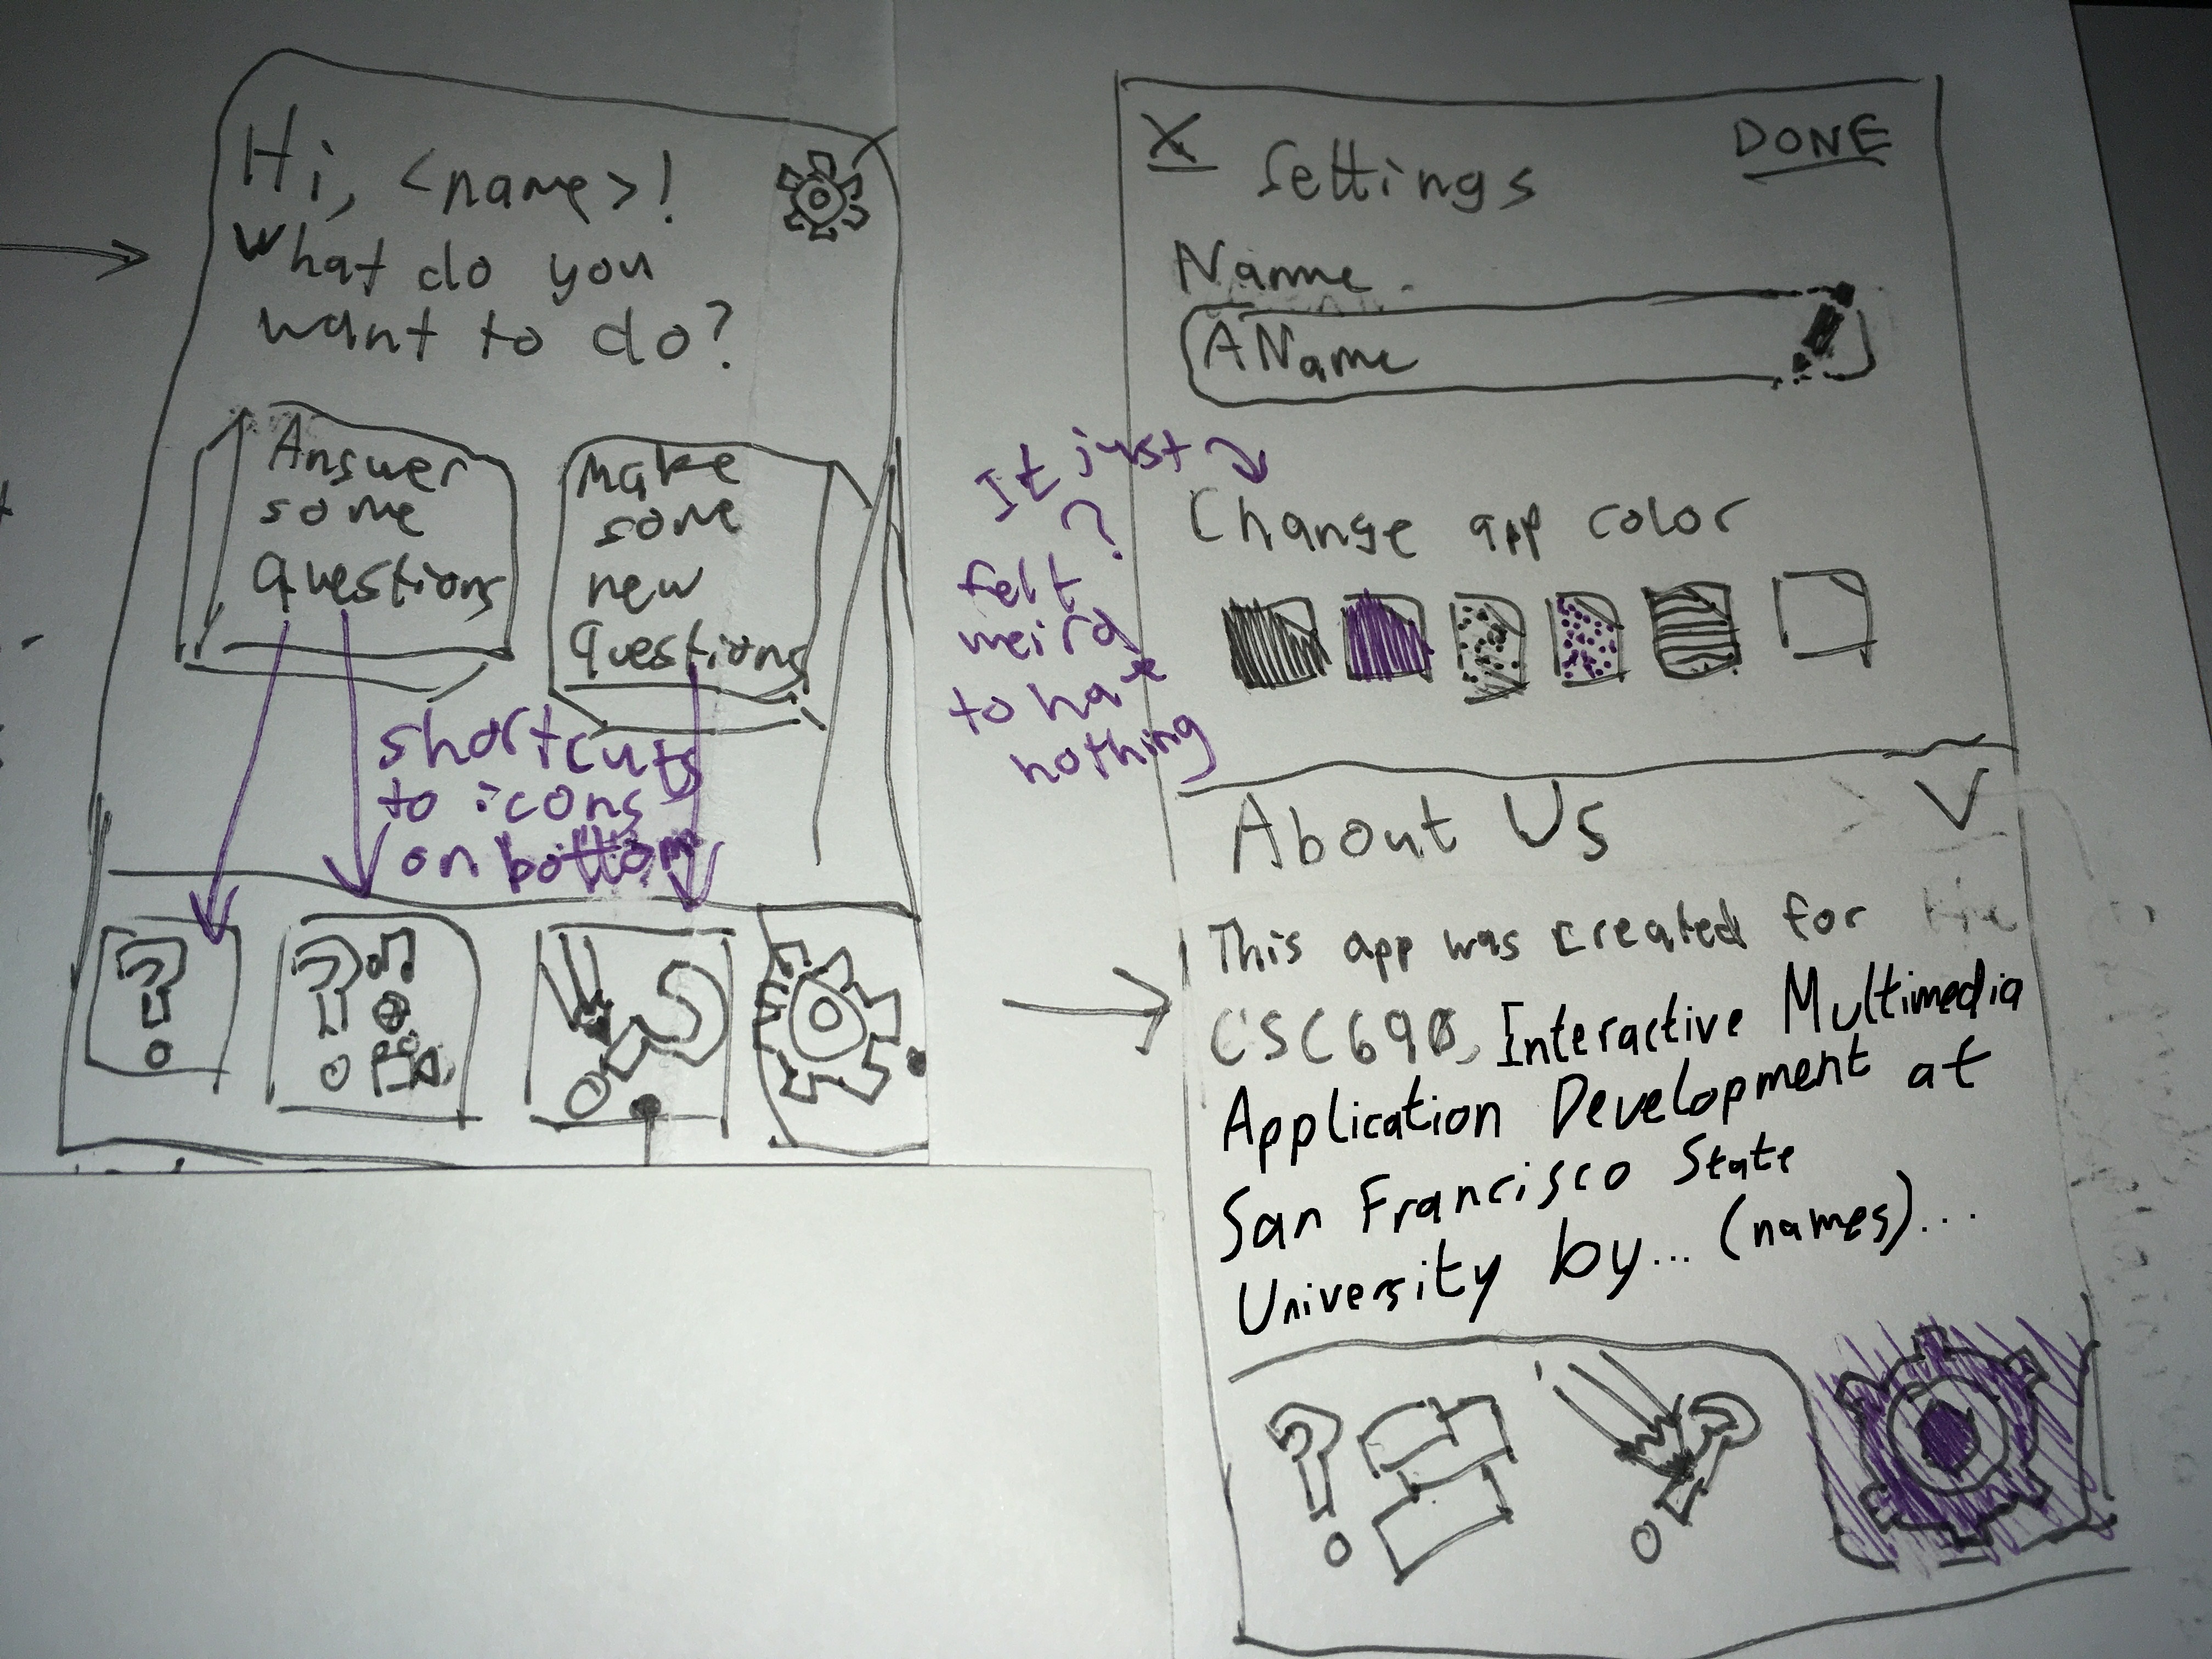 Hi, <name>!
What do you
want to do?
Answer
some
questions
Make
some
new
questions
shortcuts
to icons
on bottom
?
?
?
X
Settings
DONE
Name
AName
It just
?
felt
weird
to have
nothing
Change app color
About Us
V
This app was created for the
CSC690, Interactive Multimedia
Application Development at
San Francisco State
University by... (names)...
?
?